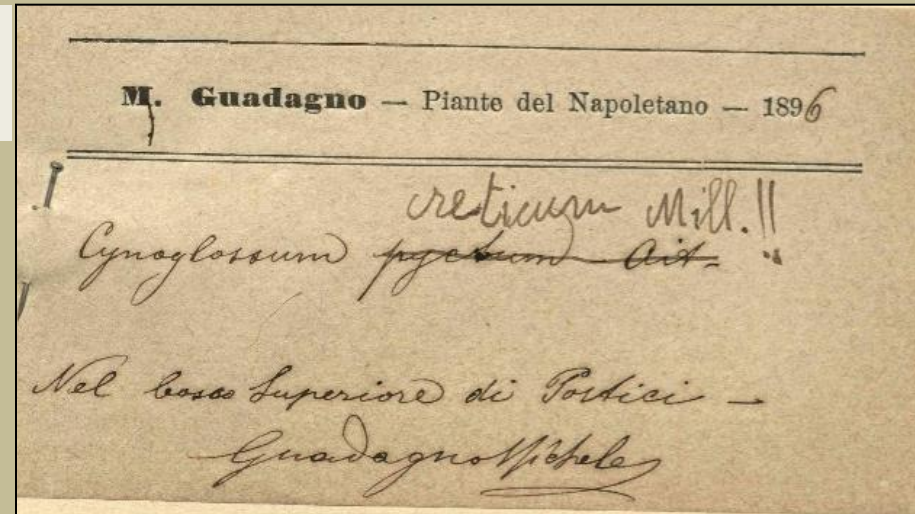 M. Guadagno — Piante del Napoletano — 1896
creticum Mill.!!
Cynoglossum pyctum Ait.
Nel bosco Superiore di Portici —
Guadagno Michele